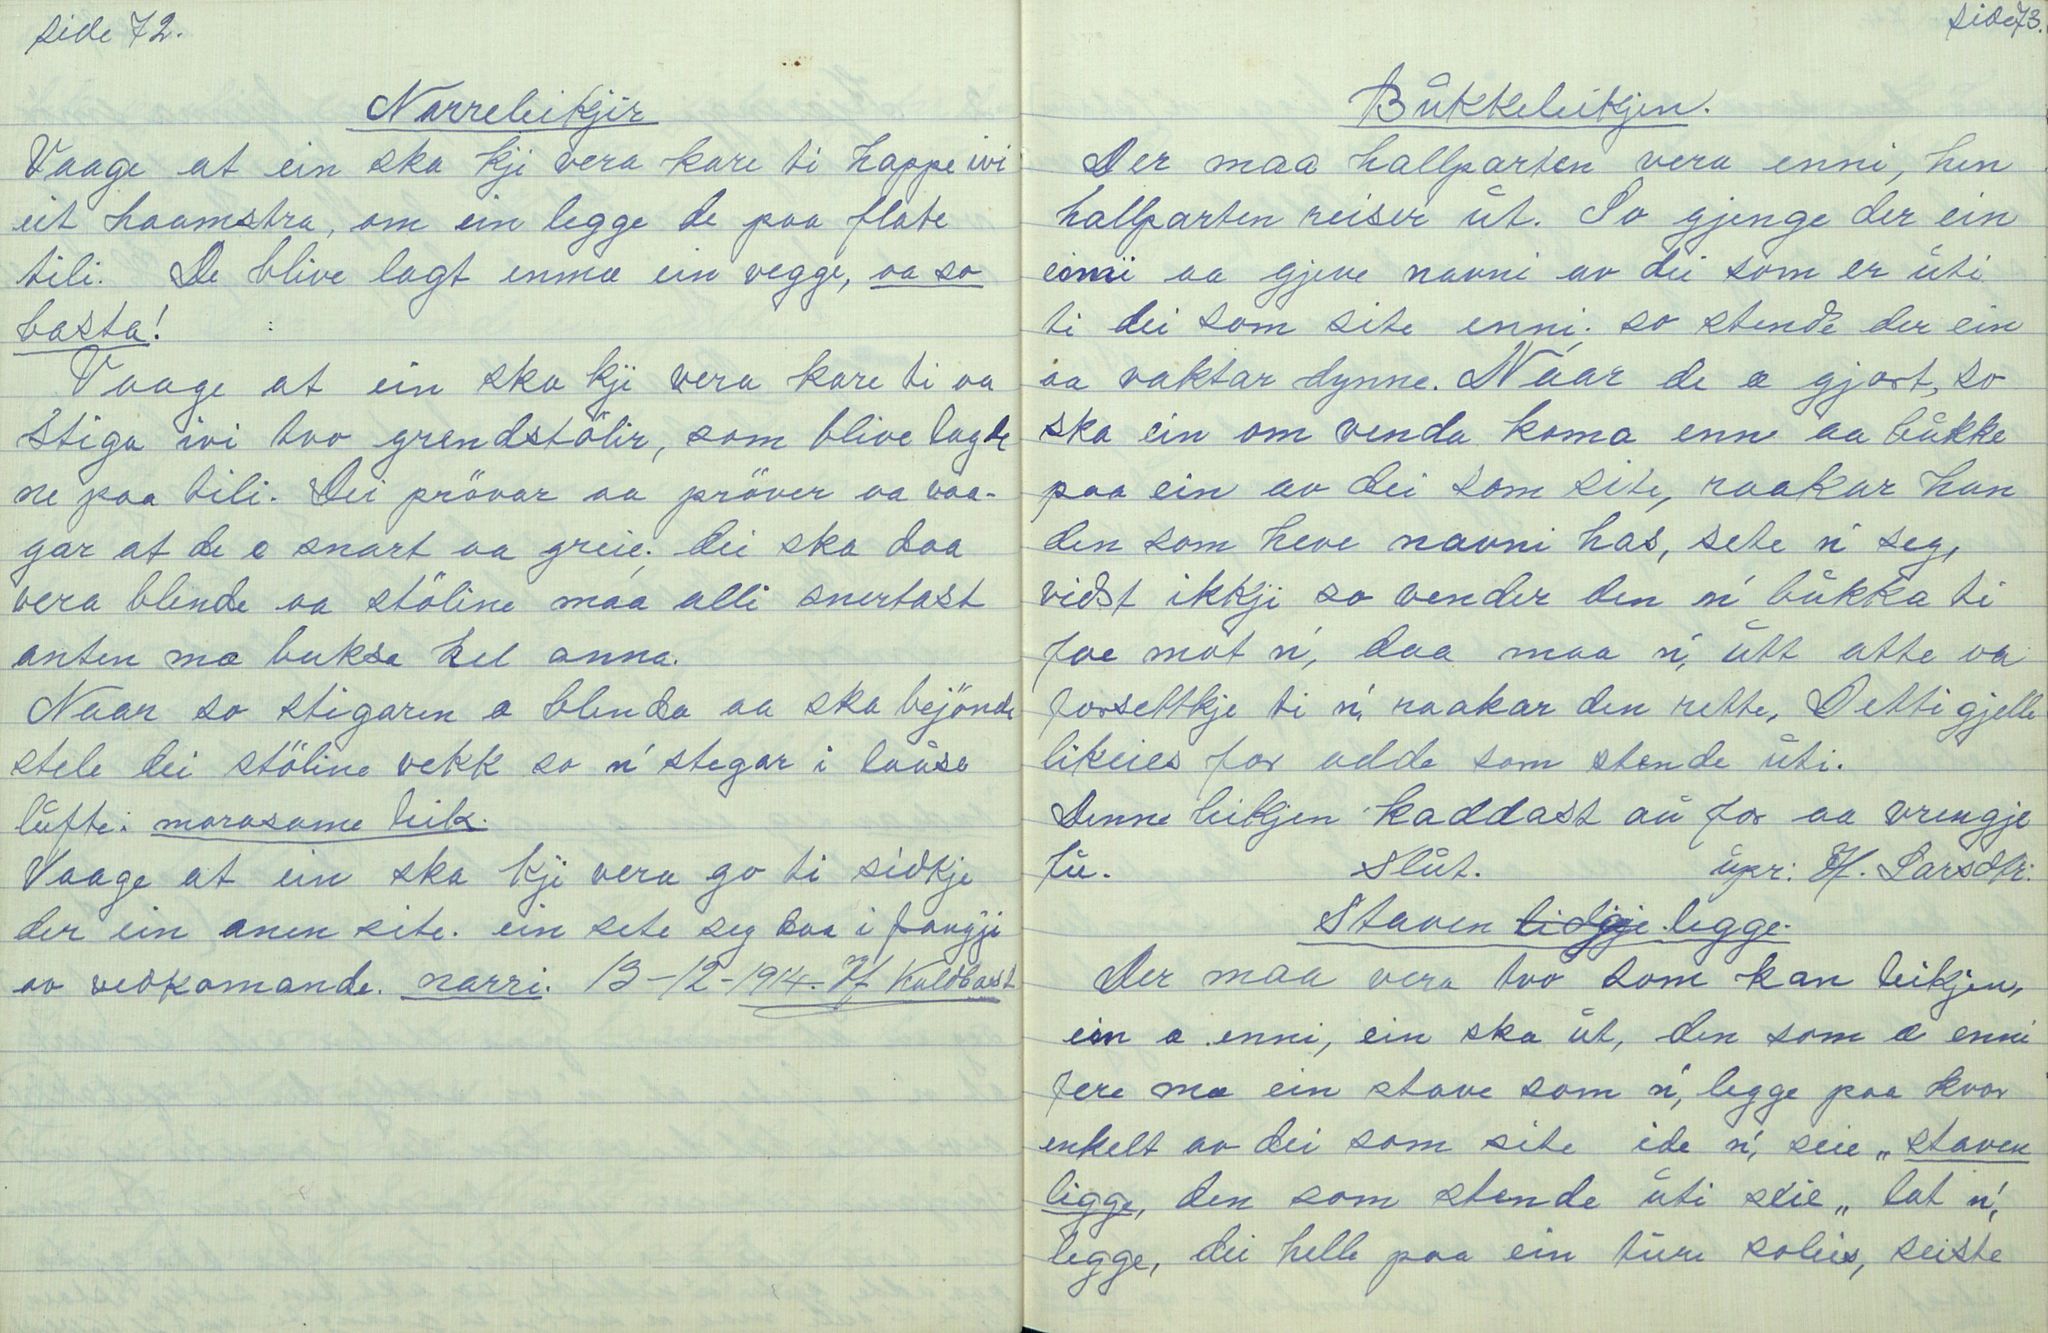 side 72.
Narreleikjir
Vaage at ein ska kji vera kare ti happe ivi
eit haamstra, om ein legge de paa flate
tili. De blive lagt enmæ ein vegge, aa so
basta!
Vaage at ein ska kji vera kare ti aa
stiga ivi tvo grendstölir, som blive lagde
ne paa tili. Dei prövar aa pröver aa vaa-
gar at de e snart aa greie; dei ska daa
vera blende aa stöline máa alli snertast
anten mæ bukse hel anna.
Naar so stigaren æ blenda aa ska bejönde
stele dei stöline vekk so n' stegar i lause
lufte: morosame leik.
Vaage at ein ska kji vera go ti sidkje
der ein anen site. ein sete seg daa i fangji
av vedkomande. narri. 13-12-1914. Hf Kaldbast
side 73.
Bŭkkeleikjen.
Der maa hallparten vera enni, hen
hallparten reiser ŭt. So gjenge der ein
enni aa gjeve navni av dei som er ŭti
ti dei som site enni; so stende der ein
aa vaktar dynne. Náar de æ gjort, so
ska ein om venda koma enn aa bŭkke
paa ein av dei som site, raakar han
den som heve navni has, sete n' seg,
vidst ikkji so vender den n' bŭkka ti
foe mot n', daa maa n', ŭtt atte aa
forsettkje ti n', raakar den rette, Detti gjelle
likeies for adde som stende ŭti.
Denne leikjen kaddast aŭ for aa vrengje
fŭ. Slŭt. ŭpr: H. Larsdtr.
Staven lidgje legge.
Der maa vera tvo som kan leikjen,
ein æ enni, ein ska ŭt, den som æ enni
fere mæ ein stave som n', legge paa kvor
enkelt av dei som site ide n', seie „staven
ligge, den som stende ŭti seie „ lat n',
legge, dei helle paa ein tŭre soleis, seiste